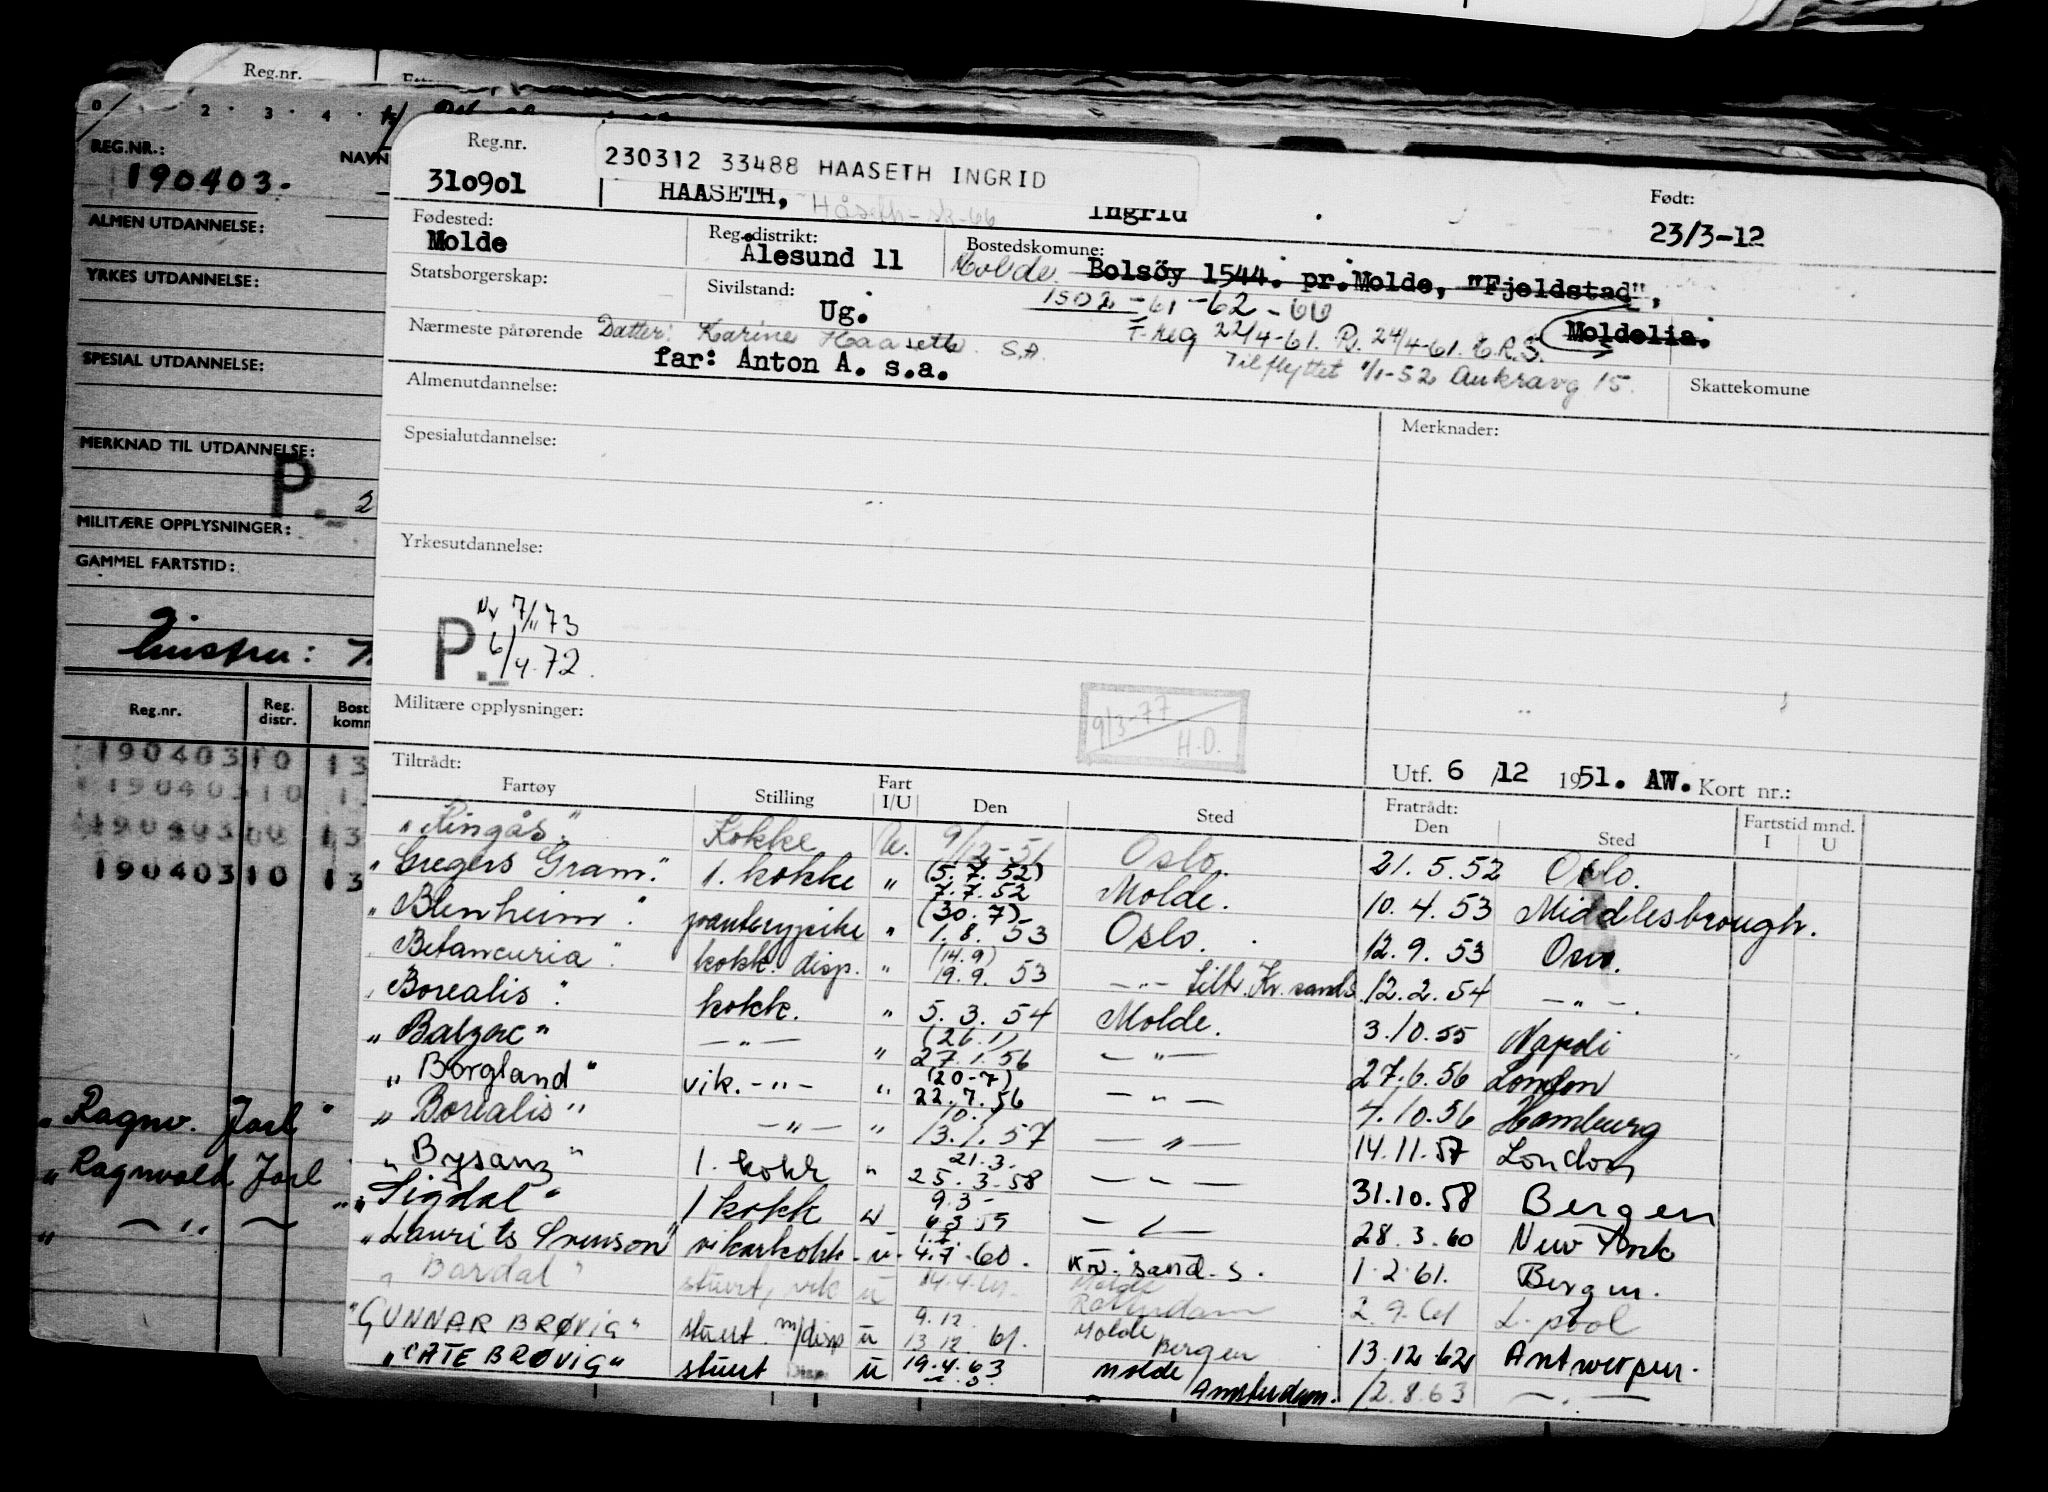 Reg.nr.
0 2 3 4
REG.NR.: NAVN
190403-
ALMEN UTDANNELSE:
YRKES UTDANNELSE:
SPESIAL UTDANNELSE:
MERKNAD TIL UTDANNELSE:
P. 2
MILITÆRE OPPLYSNINGER:
GAMMEL FARTSTID:
Reg.nr. Reg. distr. Bost. komm
190403 10 13
190403 10 13
190403 13
190403 10 13
"Ragnv. Jarl"
"Ragnvald Jarl
" — " —
Reg.nr.
230312 33488 HAASETH INGRID
Født:
310901 HAASETH, Ingrid 23/3-12
Fødested: Reg.distrikt: Bostedskomune:
Molde Ålesund 11 Molde Bolsöy 1544. pr.Molde, "Fjeldstad",
Statsborgerskap: Sivilstand: 1502 -61-62-
Ug. Moldelia.
F.reg 22/4-61. 24/4-61.
Nærmeste pårørende Datter: Karine Haaseth S.A.
far: Anton A. s.a. Tilflyttet 1/1-52 Aukravg 15.
Almenutdannelse: Skattekomune
Spesialutdannelse: Merknader:
Yrkesutdannelse:
Nv 7/11 73
P. 6/4.72.
Militære opplysninger: 9/3-77 H.D.
Utf. 6 /12 1951. AW. Kort nr.:
Tiltrådt: Fratrådt: Fartstid mnd.
Fartøy Stilling Fart I/U Den Sted Den Sted I U
"Ringås" Kokke U. 9/12-51 Oslo. 21.5.52 Oslo.
"Gregers Gram" 1. kokke " (5.7.52) 7.7.52 Molde. 10.4.53 Middlesbrough.
"Blenheim" " (30.7) 1.8.53 Oslo. 12.9.53
"Betancuria" kokk. disp. " (14.9) 19.9.53 — " — Kr.sands 12.2.54 — " —
"Borealis" kokk. " 5.3.54 Molde. 3.10.55 Napoli
"Balzac" — " — " (26.1) 27.1.56 — " — 27.6.56 London
"Borgland" vik. — " — " (20-7) 22.7.56 — " — 4.10.56 Hamburg
"Borealis" — " — " 10.1 13.1.57 — " — 14.11.57 London
"Bysanz" 1. kokk " 21.3. 25.3.58 — " — 31.10.58 Bergen
"Sigdal" 1 kokk u 9.3- — " — 28.3.60 New York
"Laurits Svenson" vikarkokk u. 4.7.60. Kr.sand.S. 1.2.61. Bergen.
"Bardal" stuert, vik u 14.4.61. Molde Rotterdam 2.9.61 L.pool
"GUNNAR BRØVIG" stuert m/disp u 9.12. 13.12.61. Molde Bergen 13.12.62 Antwerpen.
"CATE BRØVIG" stuert Disp u 19.4.63 Molde / Amsterdam. 12.8.63 — " —